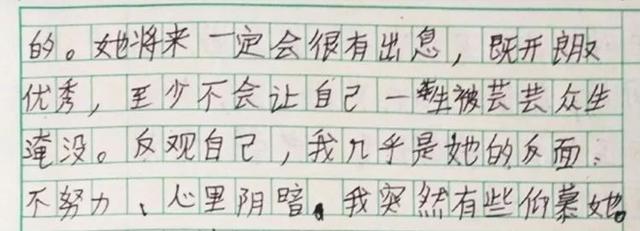 的。她将来一定会很有出息，既开朗又
优秀，至少不会让自己一生被芸芸众生
淹没。反观自己，我几乎是她的反面：
不努力、心里阴暗。我突然有些仰慕她。